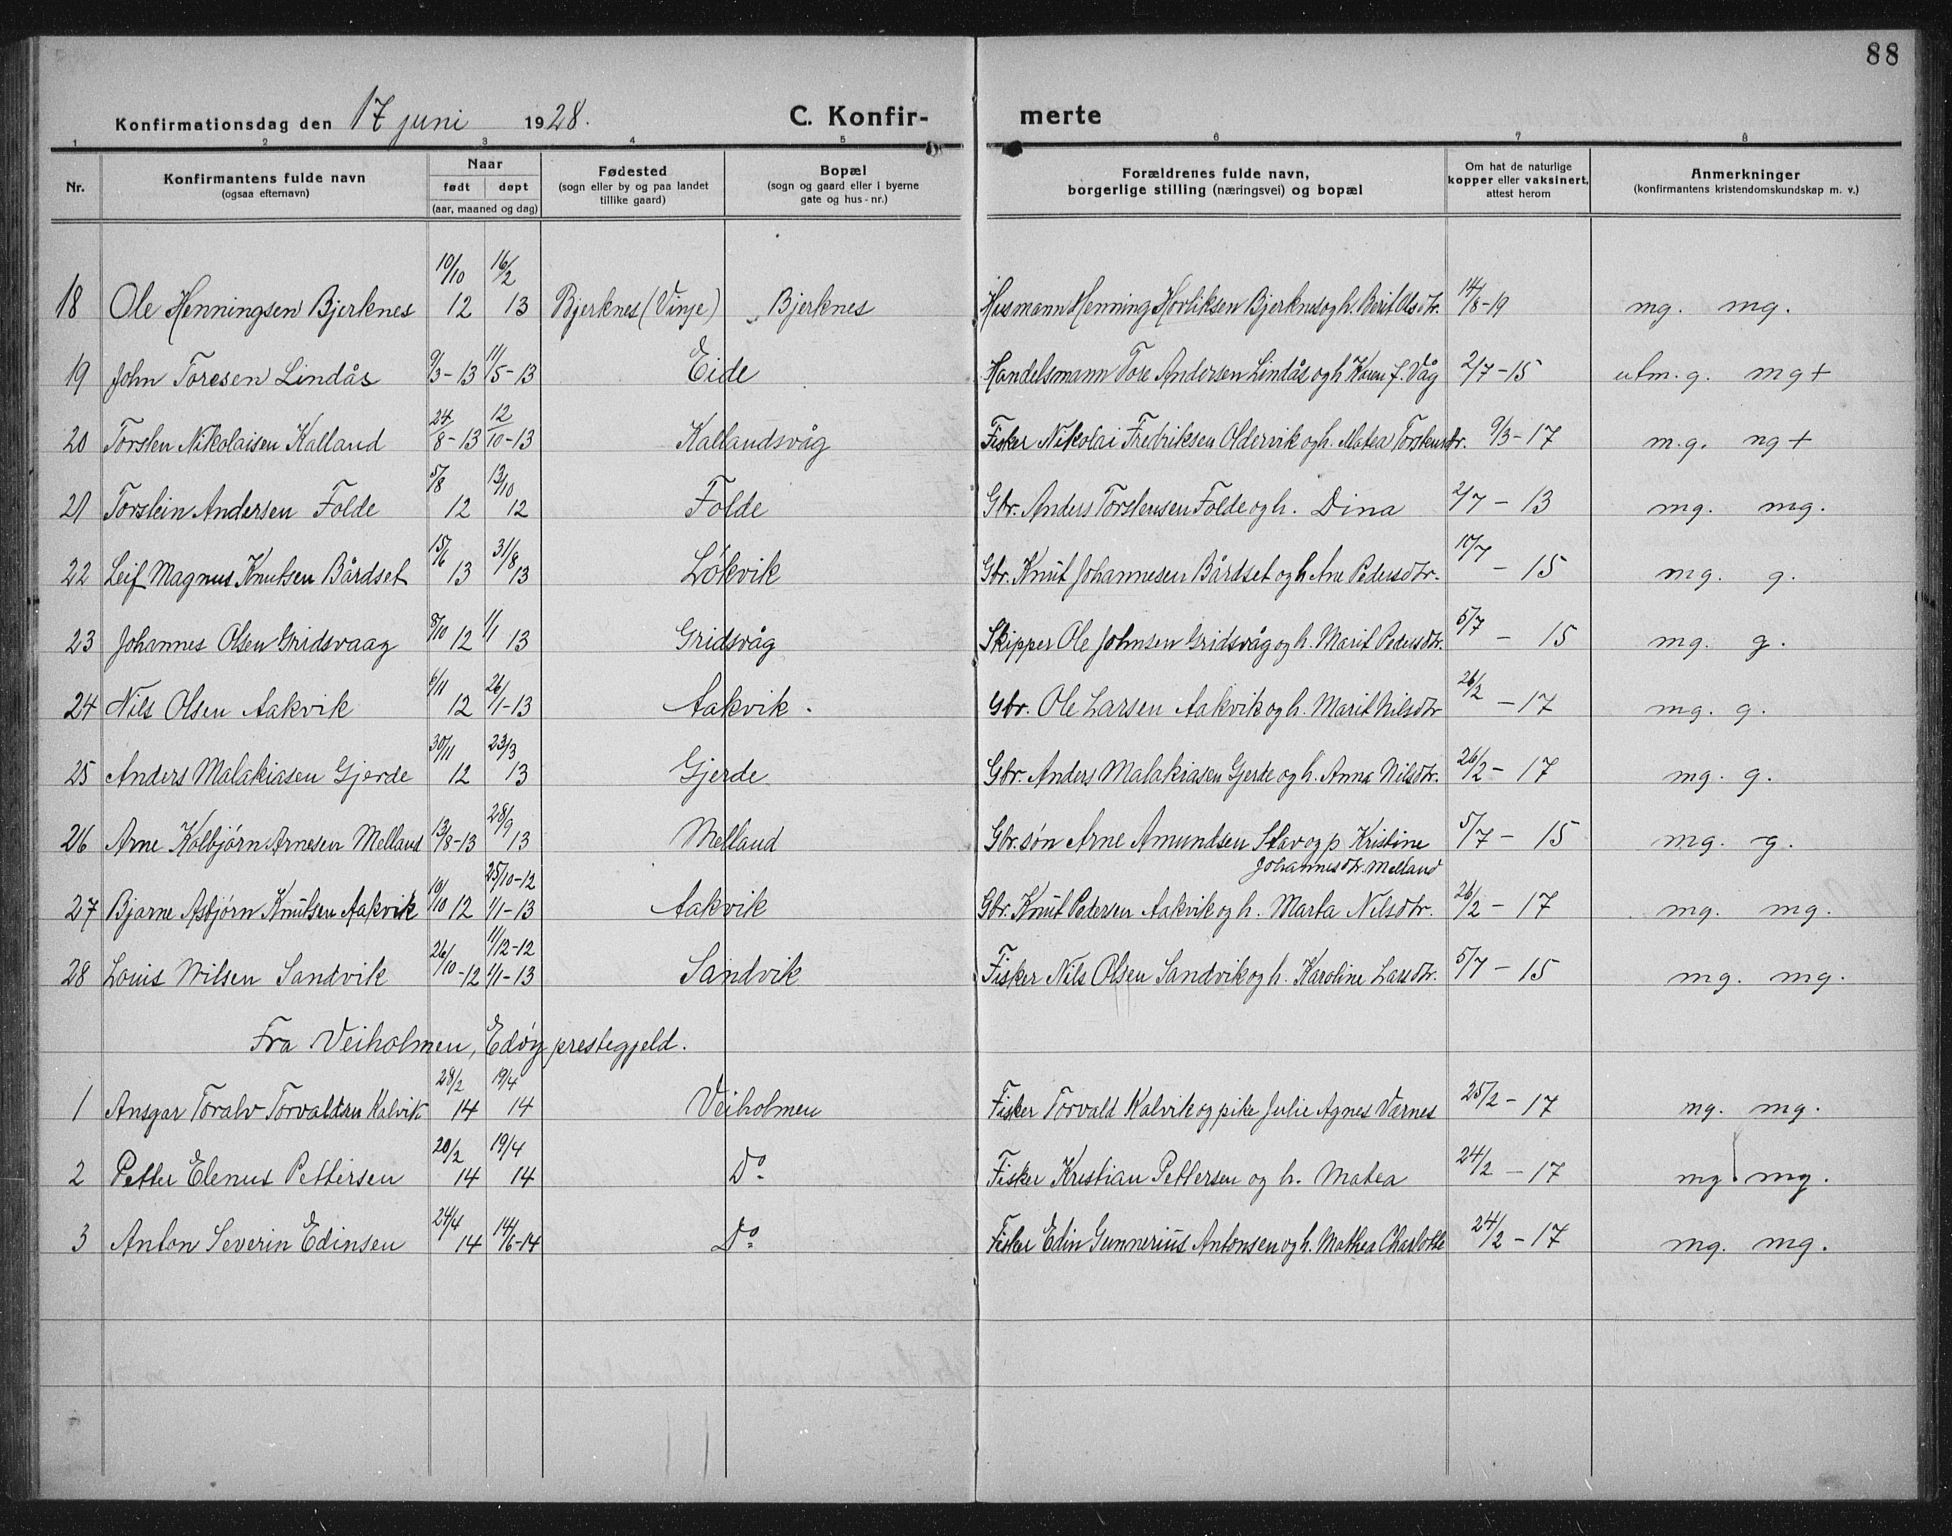 88
Konfirmationsdag den 17 juni 1928. C. Konfirmerte
1 2 3 4 5 6 7 8
Nr. | Konfirmantens fulde navn (ogsaa efternavn) | Naar født døpt (aar, maaned og dag) | Fødested (sogn eller by og paa landet tillike gaard) | Bopæl (sogn og gaard eller i byerne gate og hus-nr.) | Forældrenes fulde navn, borgerlige stilling (næringsvei) og bopæl | Om hat de naturlige kopper eller vaksinert, attest herom | Anmerkninger (konfirmantens kristendomskundskap m. v.)
18 Ole Henningsen Bjerknes 10/10 12 16/2 13 Bjerknes (Vinje) Bjerknes Husmann Henning Hovliksen Bjerknes og h. Berit Olsdtr. 14/8-19 mg. mg.
19 John Toresen Lindås 9/3-13 11/5-13 Eide Handelsmann Tore Andersen Lindås og h Karen f. Våg 2/7-15 utm.g. mg+
20 Torsten Nikolaisen Kalland 24/8-13 12/10-13 Kallandsvåg Fisker Nikolai Fredriksen Oldervik og h. Matea Torstensdtr. 9/3-17 m.g. ng+
21 Torstein Andersen Folde 5/8 12 13/10 12 Folde Gbr. Anders Torstensen Folde og h. Dina 2/7-13 mg. mg.
22 Leif Magnus Knutsen Bårdset 15/6 13 31/8 13 Løkvik Gbr. Knut Johannesen Bårdset og h Ane Pedersdtr. 17/7-15 mg. g.
23 Johannes Olsen Gridsvaag 8/10 12 1/1 13 Gridsvåg Skipper Ole Johnsen Gridsvåg og h. Marit Pedersdtr. 5/7-15 mg. g.
24 Nils Olsen Aakvik 6/11 12 26/1-13 Aakvik. Gbr. Ole Larsen Aakvik og h. Marit Nilsdtr 26/2-17 mg. g.
25 Anders Malakiasen Gjerde 30/11 12 23/3 13 Gjerde Gbr. Anders Malakiasen Gjerde og h. Anna Nilsdtr. 26/2-17 mg. g.
26 Arne Kolbjørn Arnesen Melland 13/8-13 28/9 13 Melland Gbr. søn Arne Amundsen Stav og p. Kristine 5/7-15 mg. g.
Johannesdtr. Melland
27 Bjarne Asbjørn Knutsen Aakvik 10/10 12 25/10-12 1/1-13 Aakvik Gbr. Knut Pedersen Aakvik og h. Marta Nilsdtr. 26/2-17 mg. mg.
28 Louis Nilsen Sandvik 26/10-12 11/12-12 1/1-13 Sandvik Fisker Nils Olsen Sandvik og h. Karoline Larsdtr. 5/7-15 mg. mg.
Fra Veiholmen, Edøy prestegjeld.
1 Ansgar Toralv Torvaldsen Kalvik 28/2 14 19/4 14 Veiholmen Fisker Torvald Kalvik og pike Julie Agnes Værnes 25/2-17 mg. mg.
2 Petter Elenus Pettersen 20/2 14 19/4 14 Do. Fisker Kristian Pettersen og h. Matea 24/2-17 mg. mg.
3 Anton Severin Edinsen 24/4 14 14/6-14 Do. Fisker Edin Gunnerius Antonsen og h. Mathea Charlotte 24/2-17 mg. mg.